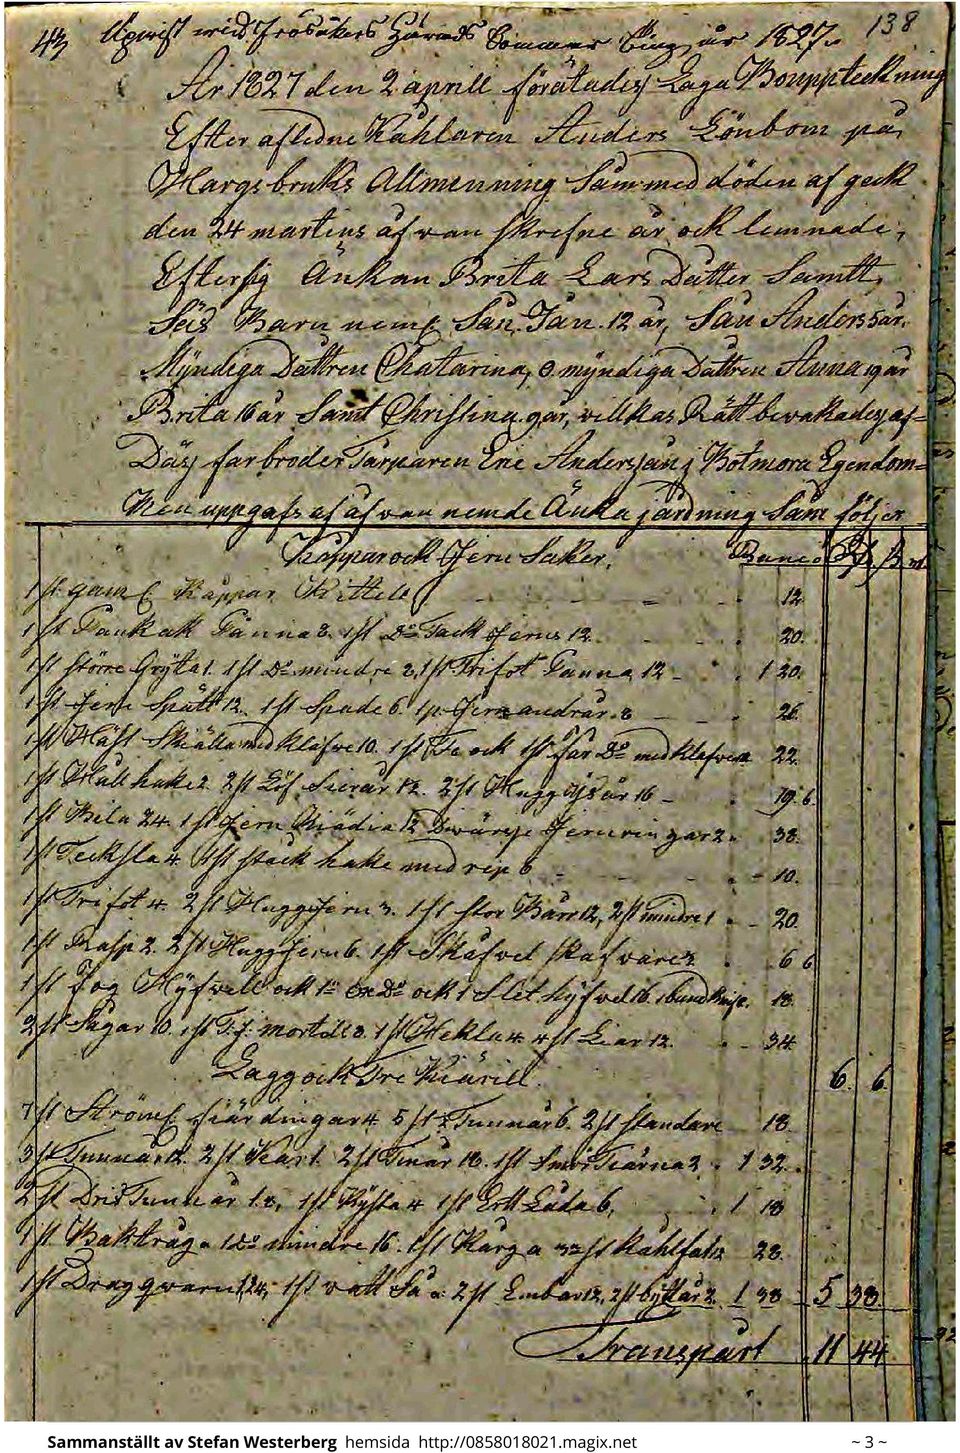 43 Upwist wid Frösåkers Härads Sommar Ting år 1827. 138
År 1827 den 2 aprill förätades Laga Bouppteckning
Efter aflidne Kåhlaren Anders Lönbom på
Hargs bruks Allmenning Sam med döden af geck
den 24 martius åfvan skrefne år ock lemnade
Efter sig Änkan Brita Lars Dåtter Samtt
Sex Barn neml. Sån Jan 12 år, Sån Anders 5 år.
Myndiga Dåttren Chatarina, o. myndiga Dåttren Anna 19 år
Brita 16 år Samt Christina 9 år, villkas Rätt bevakades af
Däs farbroder Tårparen Eric Andersån i Botmora Egendom=
Men uppgafs af åfvan nemde Änka j årdning Såm följer
Kåppar ock Jern Saker. Banco Rd
1 st gaml. Kåppar Kittell 12
1 st Pankak Panna 8. 1 st Do Tack Jerns 12 20.
1 st större Gryta 1. 1 st Do mindre 8, 1 st Trifot Panna 12 1 20.
1 st Jern Spätt 12. 1 st Spade 6. 1 p. Jern andrår 8 26.
1 st Häst Skiälla med klåfve 10. 1 st Fe ock 1 st Får Do med klafvar 22.
1 st Håll hake 2. 2 st Löf Sierår 12. 2 st Hugg yxår 16 19 6.
1 st Bila 24. 1 st Jern Kiädia 12 Jernringar 2. 38.
1 st Tecksla 4. 1 st stack hake med rep 6 10.
1 st Trifot 4. 2 st Hugg Jern 3. 1 st stor Bårr 12, 2 st mindre 1 20.
1 st Rasp 2. 2 st Hugg Jern 6. 1 st Skåfvel 6 6
1 st Fog Hyfvell ock 1 Do ock 1 Slet hyfvel 16. 1 bandknif 2. 18.
2 st Sågar 10. 1 st mortell 8. 1 st Hekla 4. 4 st Liar 12. 34.
Lagg ock Trä Kiärill 6. 6.
7 st Ströml. fiärdingar 4. 5 st Tunnår 6. 2 st Standare 18.
3 st Tunnår 12. 2 st Kar 1. 2 st Tinår 18. 1 st Smör Tiärna 2. 1 32.
2 st Drik Tunnår 1.8, 1 st Kista 4 1 st Ertt Låda 6, 1 18
1 st Baktråg 1 Do mindre 16. 1 st Kårg st Kåhlfat 28.
1 st Drag qvarn 1,24, 1 st vatt Så 2 st Embar 12, 2 st byttår 2. 1 38 5 38.
Transpårt 11 44.
Sammanställt av Stefan Westerberg hemsida http://0858018021.magix.net ~ 3 ~